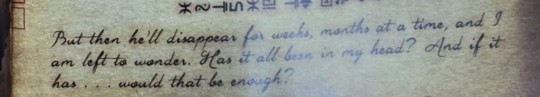 But then he'll disappear for weeks, months at a time, and I
am left to wonder. Has it all been in my head? And if it
has . . . would that be enough?